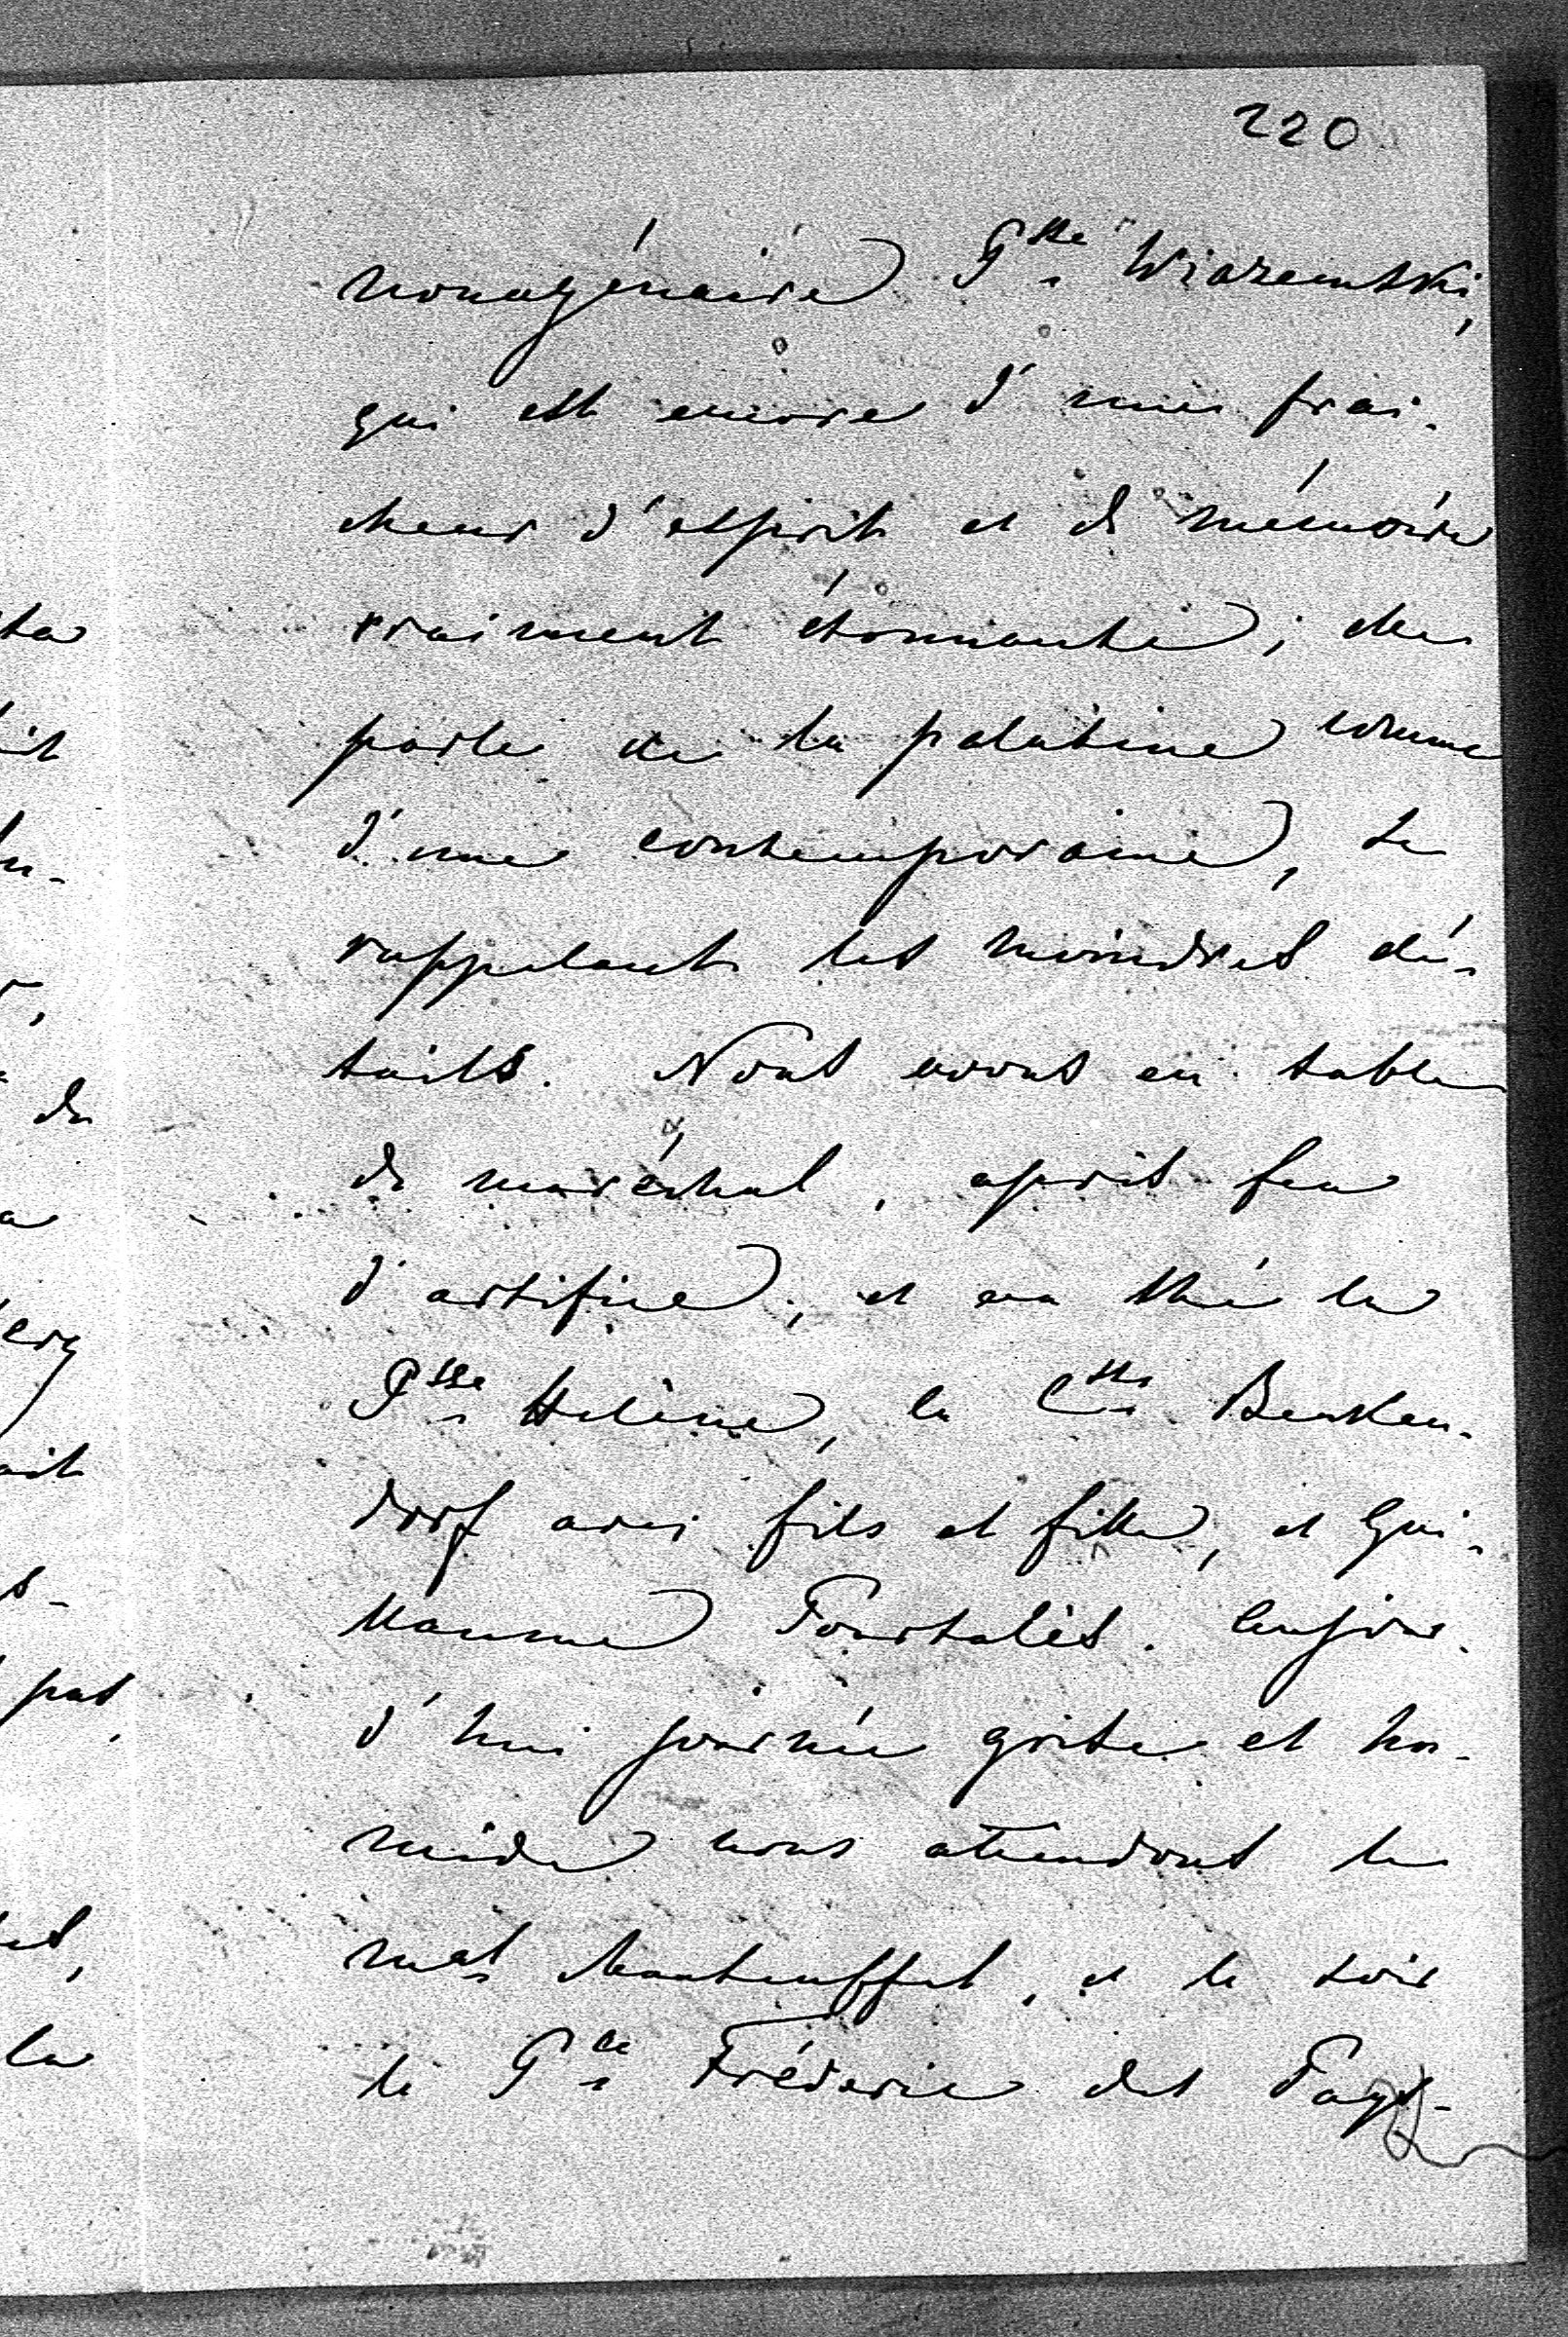 220
nonagénaire Psse Wiazemski,
qui est encore d'une fraî-
cheur d'esprit et de mémoire
vraiment étonnante; elle
parle de la palatine comme
d'une contemporaine, se
rappelant les moindres dé-
tails. Nous avons eu table
de maréchal, après feu
d'artifice, et au thé la
Psse Hélène, la Csse Benken-
dorf avec fils et fille, et Gui-
llaume Pourtalès. Aujour-
d'hui journée grise et hu-
mide nous attendons le
mal Manteuffel, et le soir
le Pce Fréderic des Pays-
ta
it
de
a
ait
pas,
la